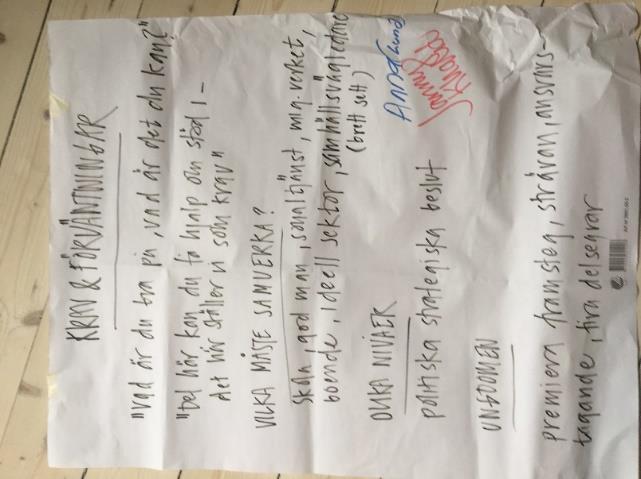 KRAV & FÖRVÄNTNINGAR
"Vad är du bra på, vad är det du kan?"
"Det här kan du få hjälp och stöd i -
det här ställer vi som krav"
VILKA MÅSTE SAMVERKA?
Skola, god man, socialtjänst, mig.verket,
boende, ideell sektor, samhällsvägledare
(brett sett)
OLIKA NIVÅER
politiska strategiska beslut
UNGDOMEN
premiera framsteg, strävan, ansvars-
tagande, fira delsegrar